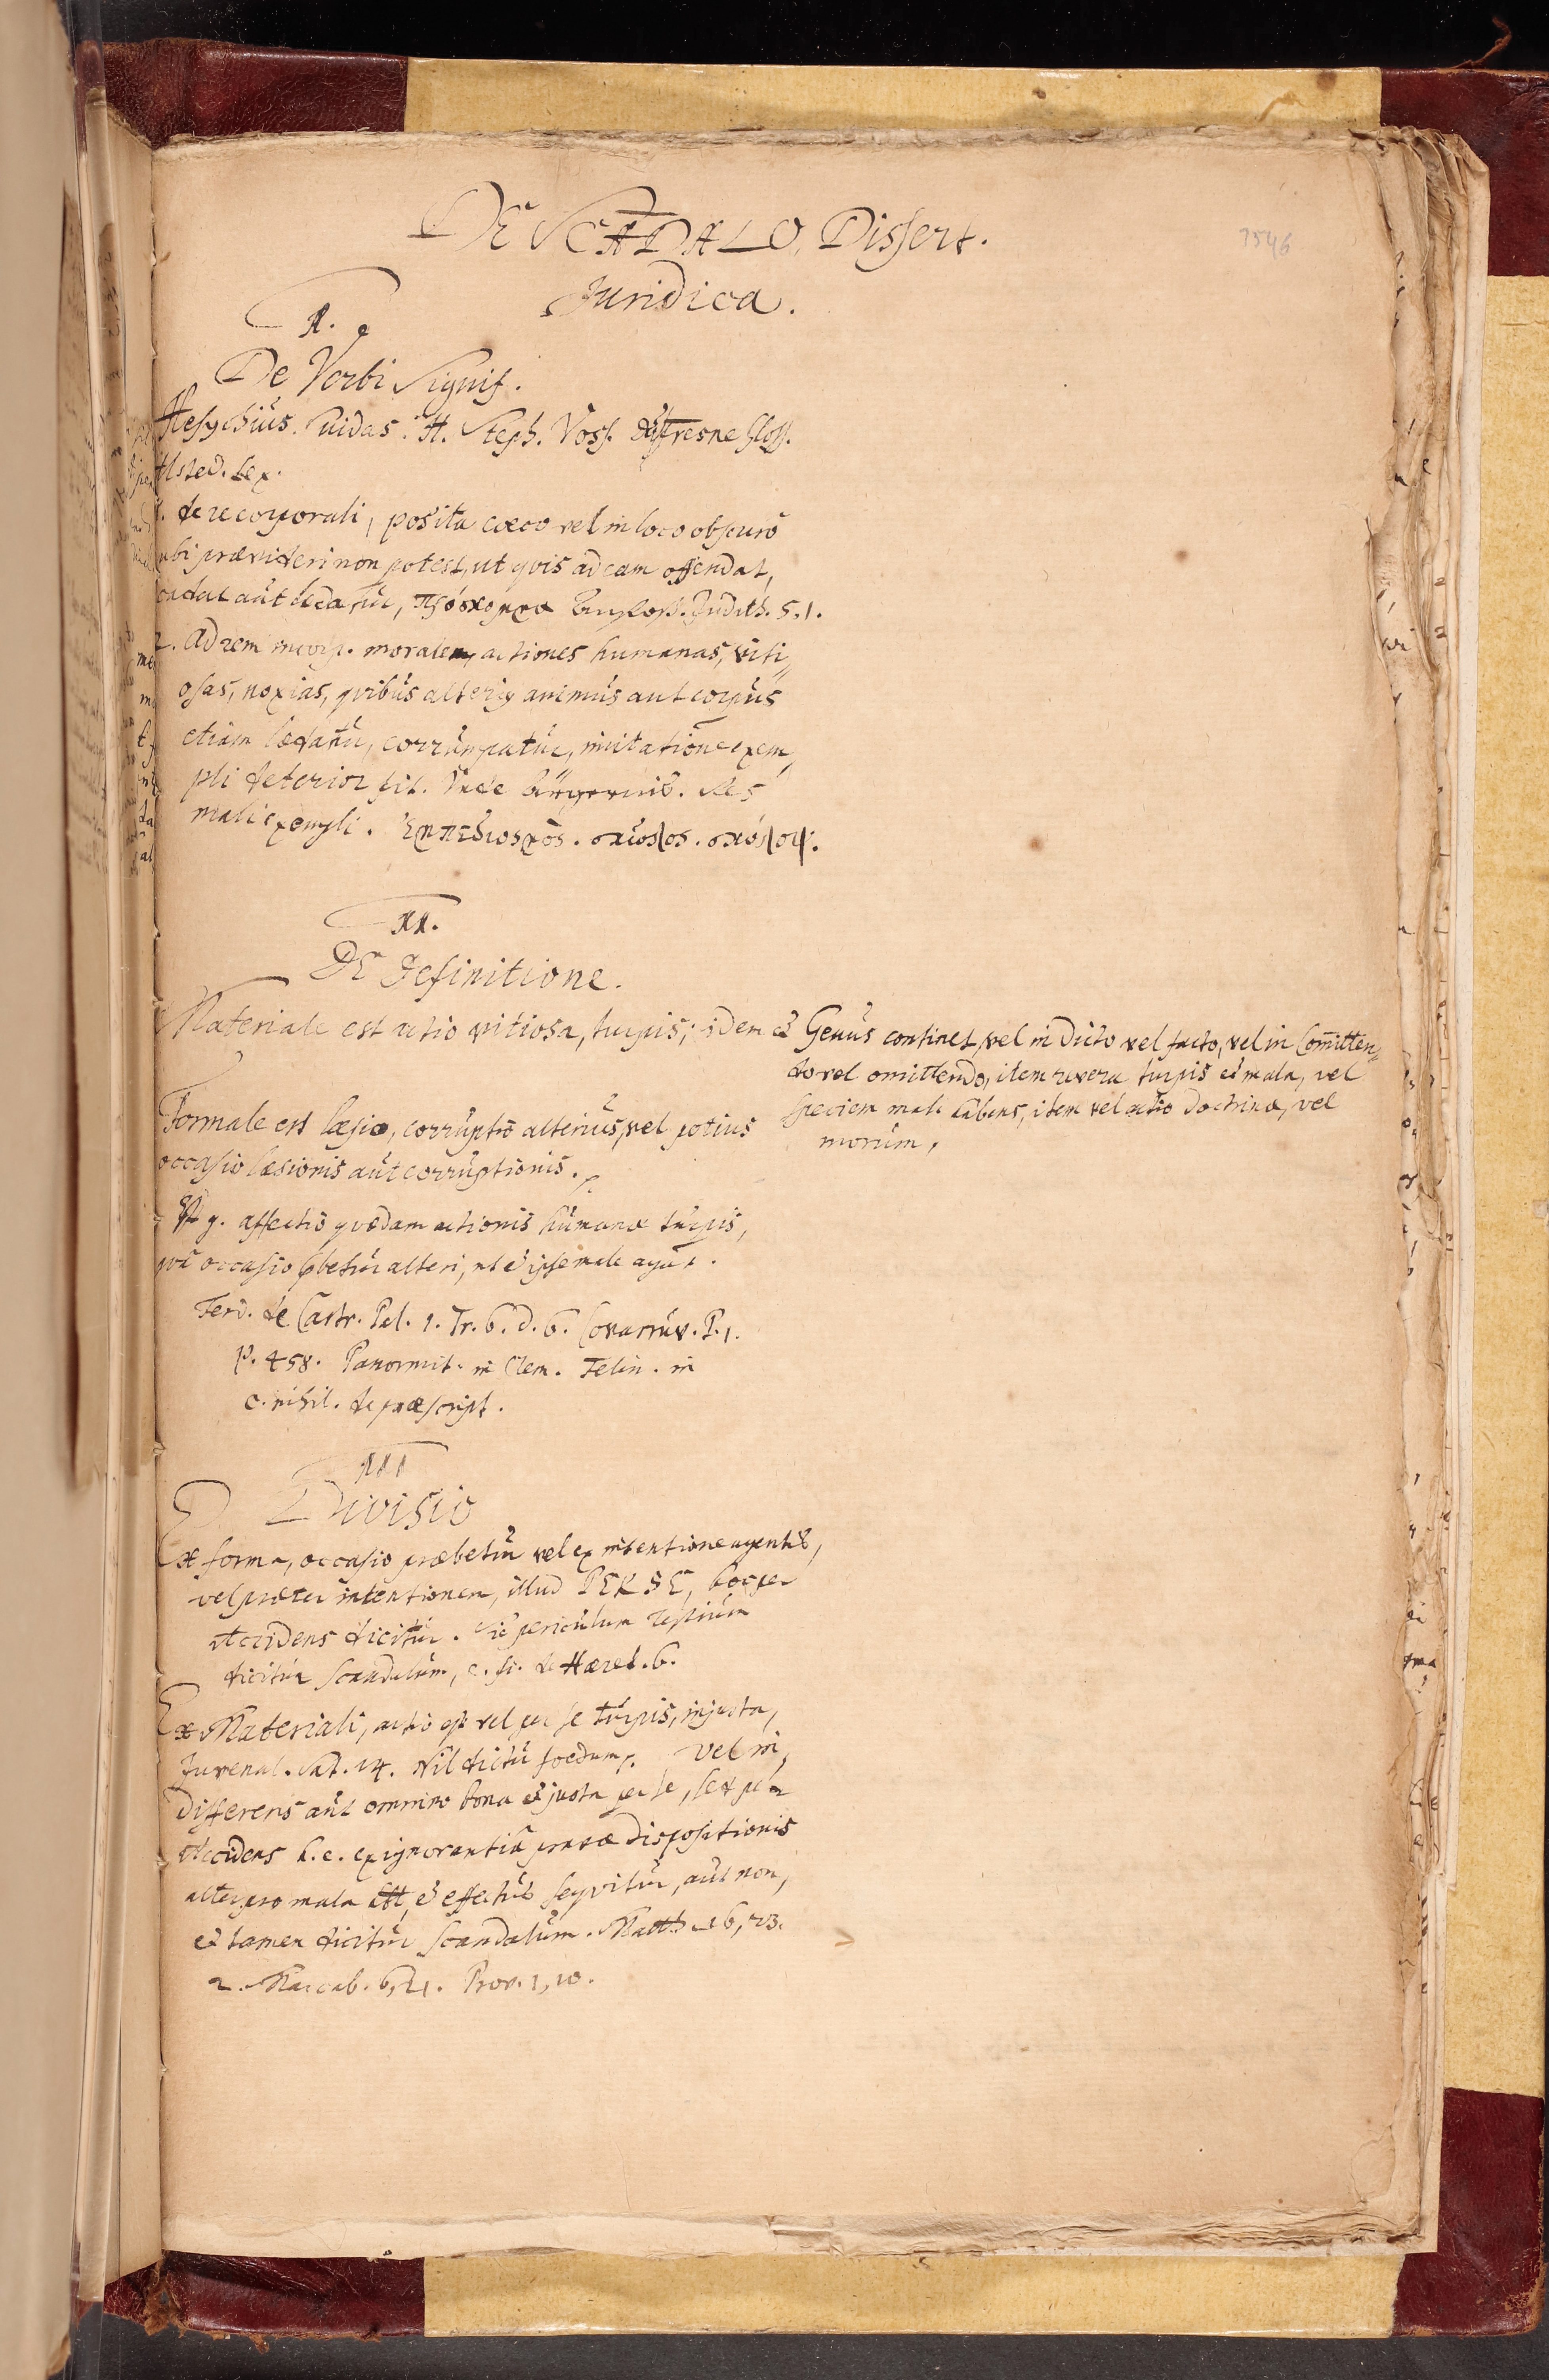 DE SCANDALO, Dissert.
Juridica.
7546
I.
De Verbi Signif.
Hesychius. Suidas. H. Steph. Voss. du Fresne Gloss.
Alsted. Lex.
1. de re corporali, posita coeco vel in loco obscuro
ubi prævideri non potest, ut qvis ad eam offendat,
cadat aut lædatur, Judith. 5, 1.
2. Ad rem incorp. moralem, actiones humanas, viti„
osas, noxias, qvibus alterius animus aut corpus
etiam lædatur, corrumpatur, imitatione exem„
pli deterior fit. Inde Res
mali exempli.
II.
DE Definitione.
Materiale est actio vitiosa, turpis; idem
Formale est læsio, corruptio alterius, vel potius
occasio læsionis aut corruptionis.
Est g. affectio qvædam actionis humanæ turpis,
qvâ occasio præbetur alteri, ut et ipse male agat.
Ferd. de Castr. Pal. 1. Tr. 6. d. 6. Covarruv. P. 1.
p. 458. Panormit. in Clem. Felin. in
c. nihil. de præscript.
Genus continet, vel in dicto vel facto, vel in Committen„
do vel omittendo, item revera turpis et mala, vel
speciem mali habens, item vel actio doctrinæ, vel
morum,
III
Divisio
Ex forma, occasio præbetur vel ex intentione agentis,
vel præter intentionem, illud PER SE, hoc per
Accidens dicitur. Sic periculum testium
dicitur scandalum, c. fi. de Hæret. 6.
Ex Materiali, actio est vel per se turpis, injusta,
Juvenal. Sat. 14. Nil dictu foedum. Vel in„
differens aut omnino bona et justa per se, sed per
Accidens h. e. ex ignorantiâ pravæ dispositionis
alteri pro mala est, et effectus seqvitur, aut non,
et tamen dicitur scandalum. Matth. 16, 23.
2. Maccab. 6, 21. Prov. 1, 10.